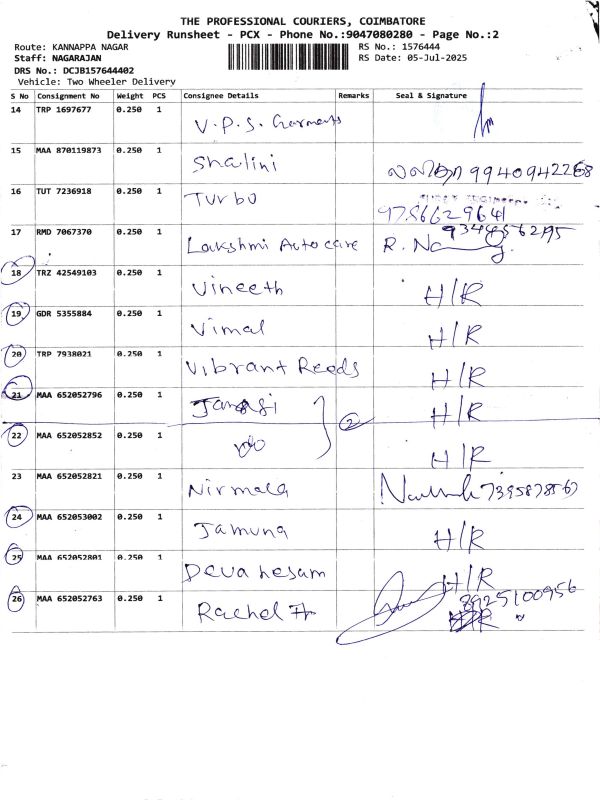 THE PROFESSIONAL COURIERS, COIMBATORE
Delivery Runsheet - PCX - Phone No.:9047080280 - Page No.:2
Route: KANNAPPA NAGAR RS No.: 1576444
Staff: NAGARAJAN RS Date: 05-Jul-2025
DRS No.: DCJB157644402
Vehicle: Two Wheeler Delivery
S No Consignment No Weight PCS Consignee Details Remarks Seal & Signature
14 TRP 1697677 0.250 1 V.P.S. Garments
15 MAA 870119873 0.250 1 Shalini 9940942268
16 TUT 7236918 0.250 1 Turbo 9786629641
17 RMD 7067370 0.250 1 Lakshmi Autocare R.
18 TRZ 42549103 0.250 1 Vineeth H/R
19 GDR 5355884 0.250 1 Vimal H/R
20 TRP 7938021 0.250 1 Vibrant Reeds H/R
21 MAA 652052796 0.250 1 H/R
2
22 MAA 652052852 0.250 1 H/R
23 MAA 652052821 0.250 1 Nirmala 7395878567
24 MAA 652053002 0.250 1 Jamuna H/R
25 MAA 652052801 0.250 1 Devanesam H/R
26 MAA 652052763 0.250 1 Rachel 8925100956
H/R